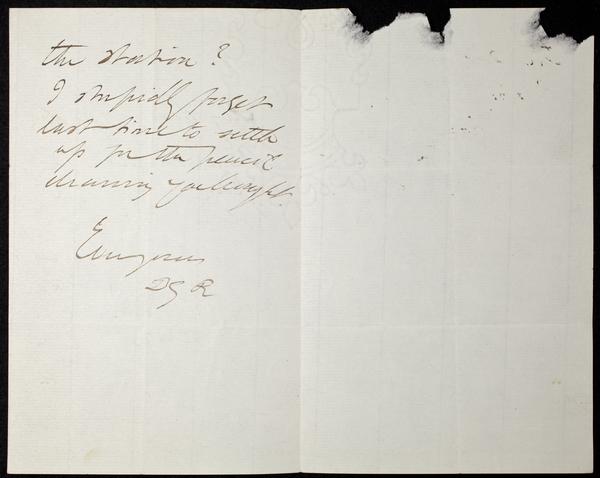 the station?
I stupidly forgot
last time to settle
up for the pencil
drawing you bought.
Ever yours
DGR